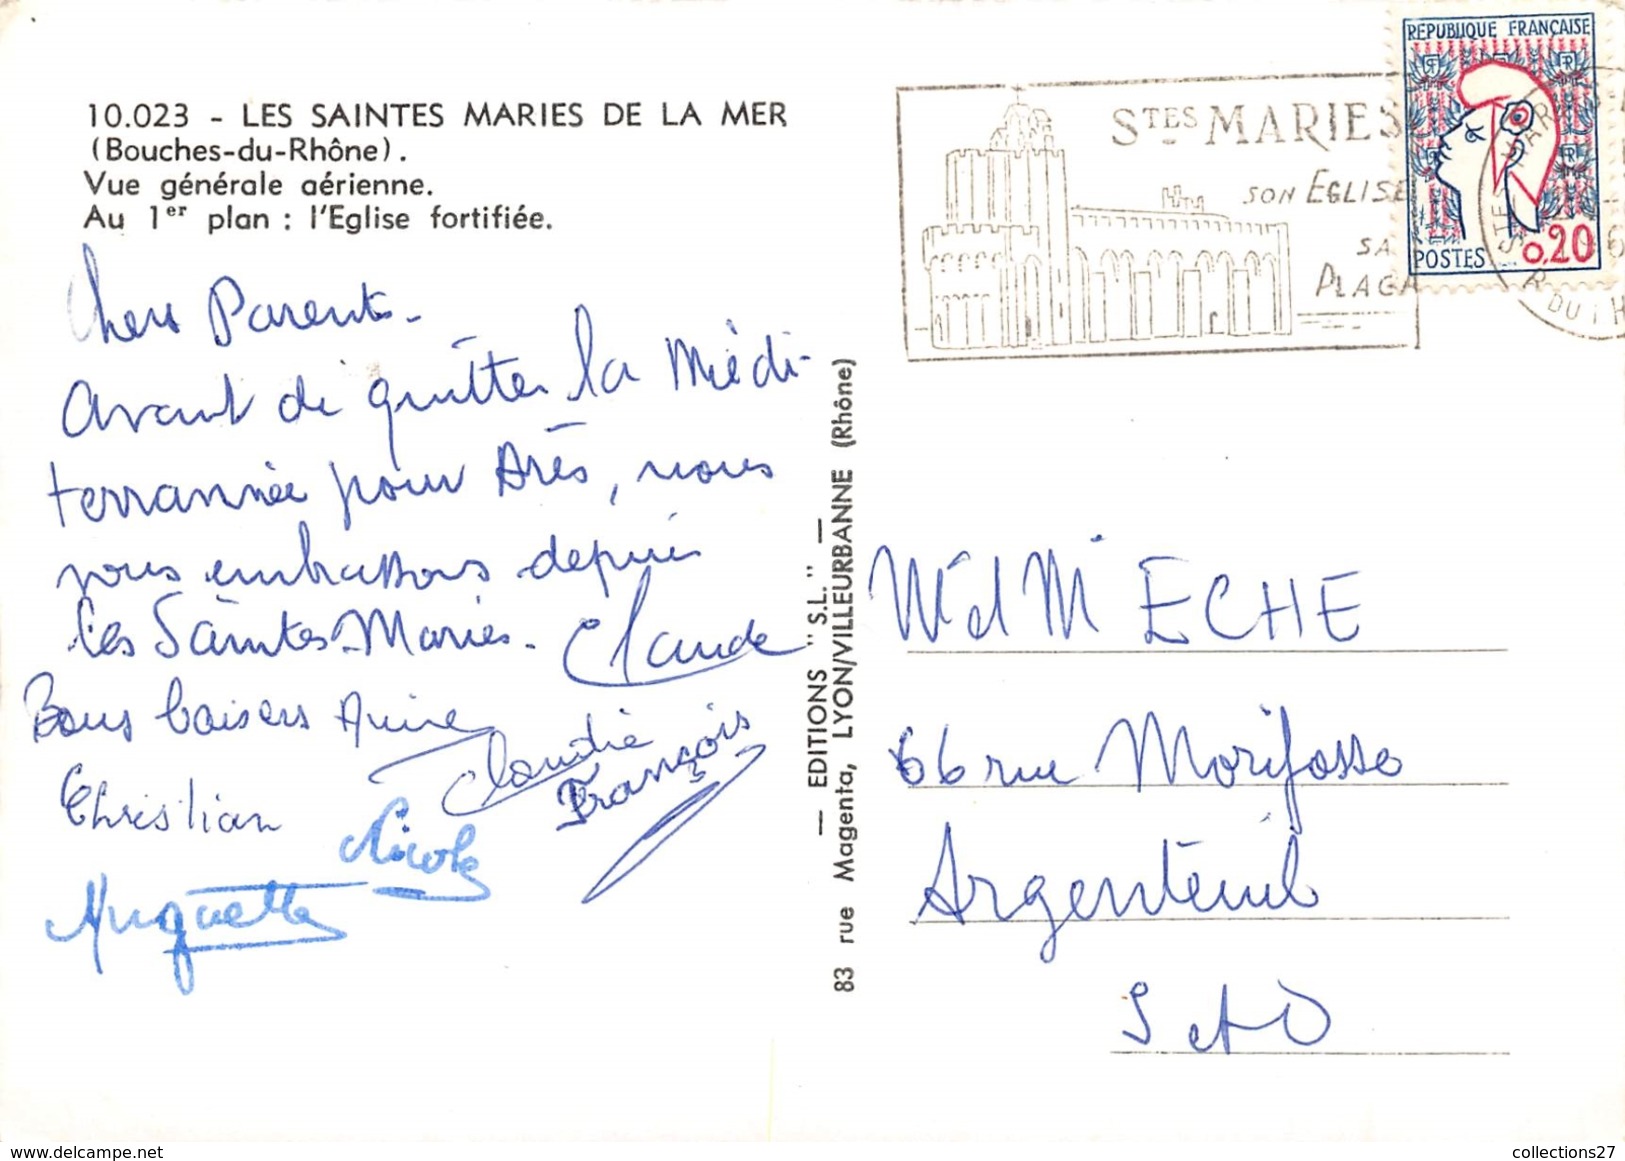 10.023 - LES SAINTES MARIES DE LA MER
(Bouches-du-Rhône).
Vue générale aérienne.
Au 1er plan : l'Eglise fortifiée.
Chers Parents -
Avant de quitter la Médi-
terrannée pour Arès, nous
vous embrassons depuis
les Saintes-Maries - Claude
Bons baisers Anne
Claudie
François
Christian
Nicole
Muguette
— EDITIONS "S.L." —
83 rue Magenta, LYON/VILLEURBANNE (Rhône)
STES MARIES
SON EGLISE
SA
PLAGE
REPUBLIQUE FRANÇAISE
POSTES 0,20
STES MARIES
DU RH
Mr et Me ECHE
66 rue Morifosse
Argenteuil
S et O
collections27